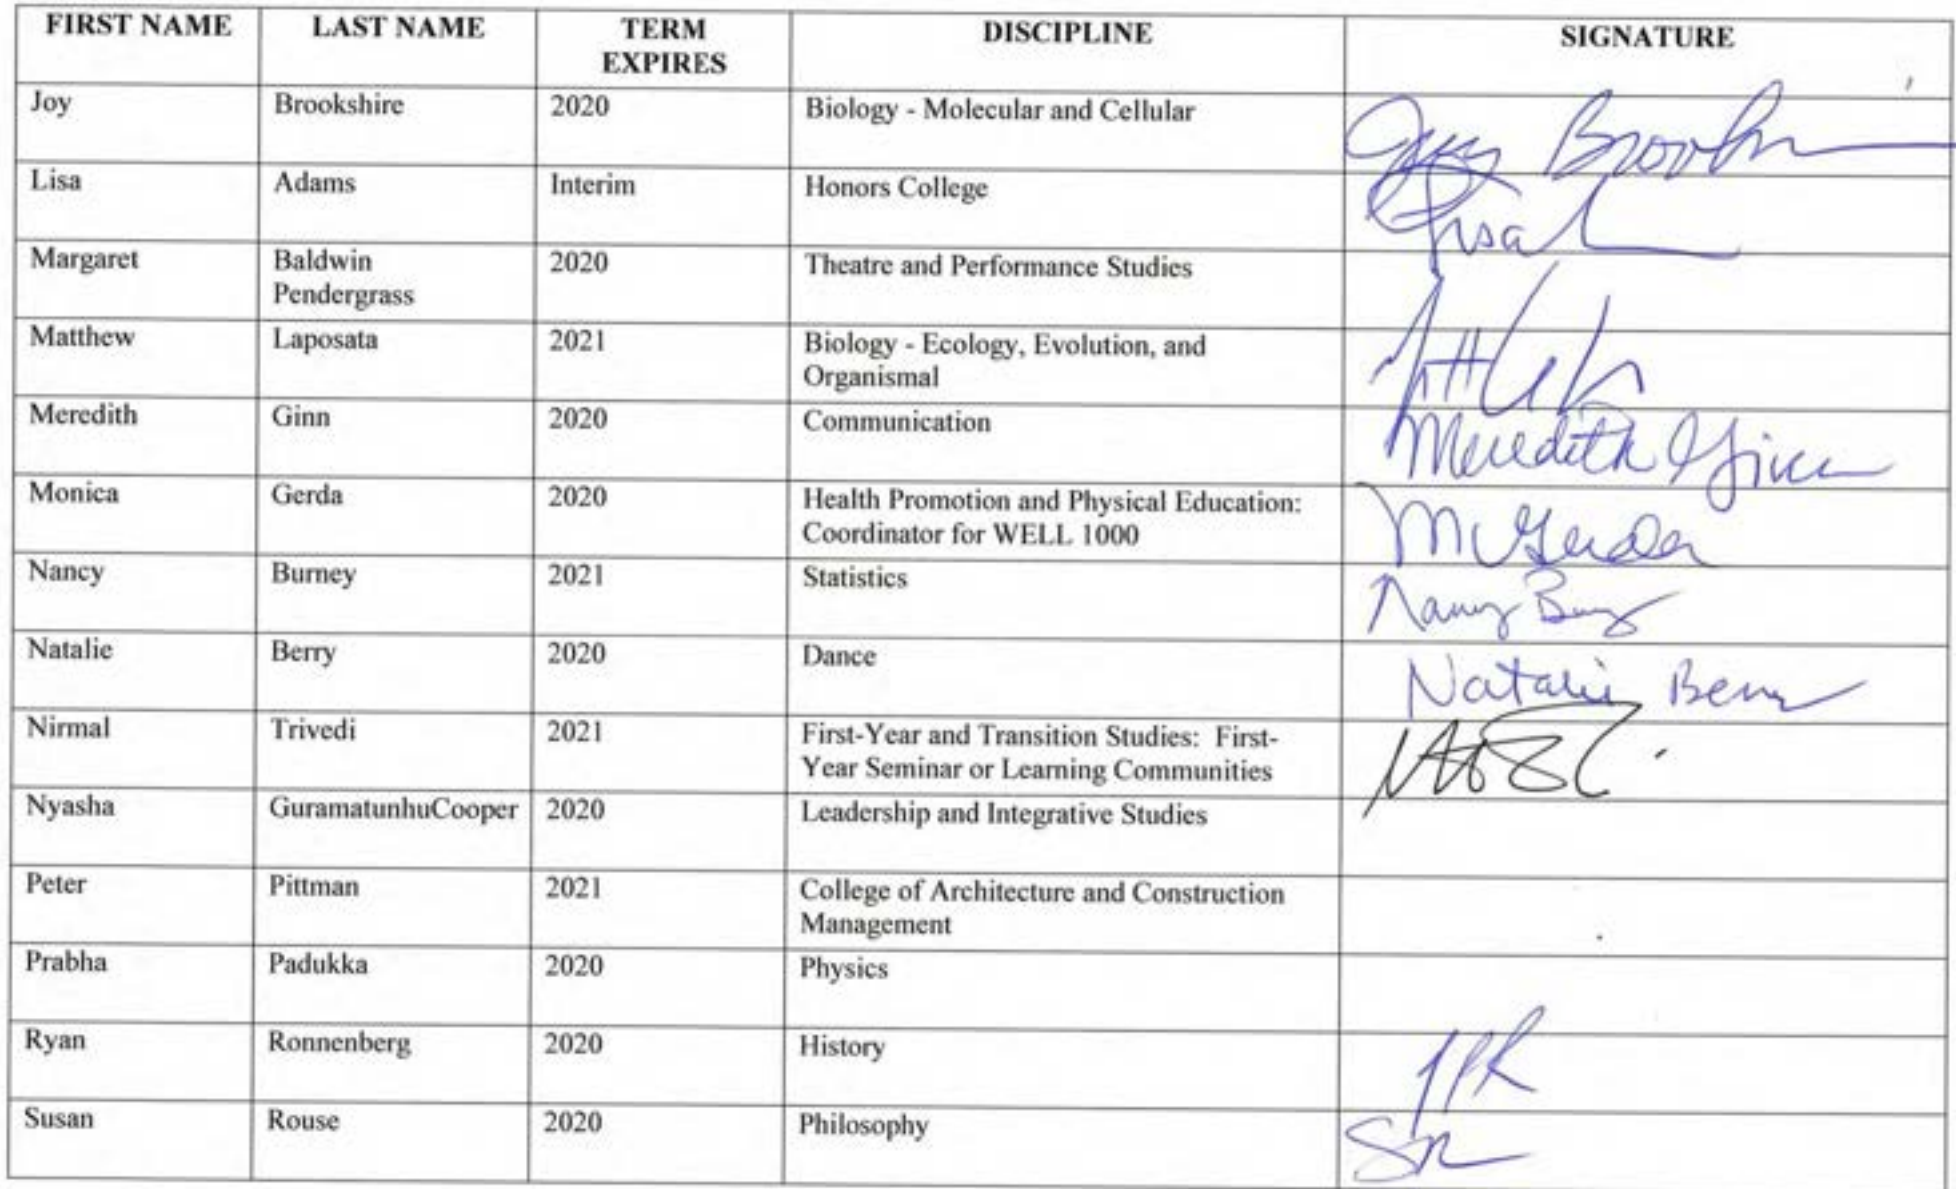 FIRST NAME LAST NAME TERM EXPIRES DISCIPLINE SIGNATURE
Joy Brookshire 2020 Biology - Molecular and Cellular Joy Brooksh
Lisa Adams Interim Honors College Lisa
Margaret Baldwin Pendergrass 2020 Theatre and Performance Studies
Matthew Laposata 2021 Biology - Ecology, Evolution, and Organismal
Meredith Ginn 2020 Communication Meredith Ginn
Monica Gerda 2020 Health Promotion and Physical Education: Coordinator for WELL 1000 M Gerda
Nancy Burney 2021 Statistics Nancy Burney
Natalie Berry 2020 Dance Natalie Berry
Nirmal Trivedi 2021 First-Year and Transition Studies: First-Year Seminar or Learning Communities
Nyasha GuramatunhuCooper 2020 Leadership and Integrative Studies
Peter Pittman 2021 College of Architecture and Construction Management
Prabha Padukka 2020 Physics
Ryan Ronnenberg 2020 History
Susan Rouse 2020 Philosophy SR